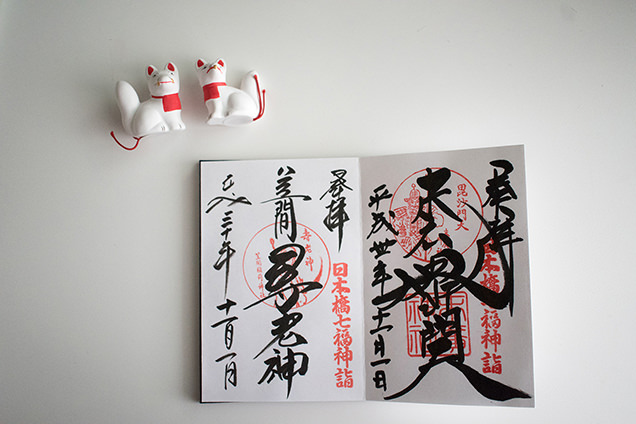 奉拝
日本橋七福神詣
毘沙門天
平成卅年十一月一日
奉拝
日本橋七福神詣
笠間
寿老神
平成三十年十一月一日